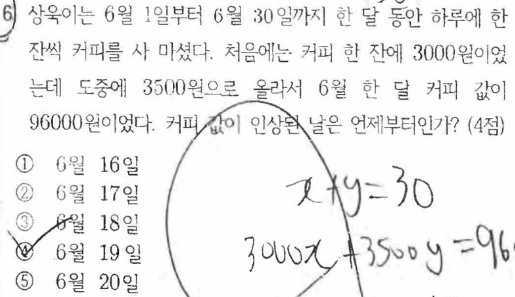 6 상욱이는 6월 1일부터 6월 30일까지 한 달 동안 하루에 한
잔씩 커피를 사 마셨다. 처음에는 커피 한 잔에 3000원이었
는데 도중에 3500원으로 올라서 6월 한 달 커피 값이
96000원이었다. 커피 값이 인상된 날은 언제부터인가? (4점)
① 6월 16일
② 6월 17일
③ 6월 18일
④ 6월 19일
⑤ 6월 20일
x+y=30
3000x+3500y=96